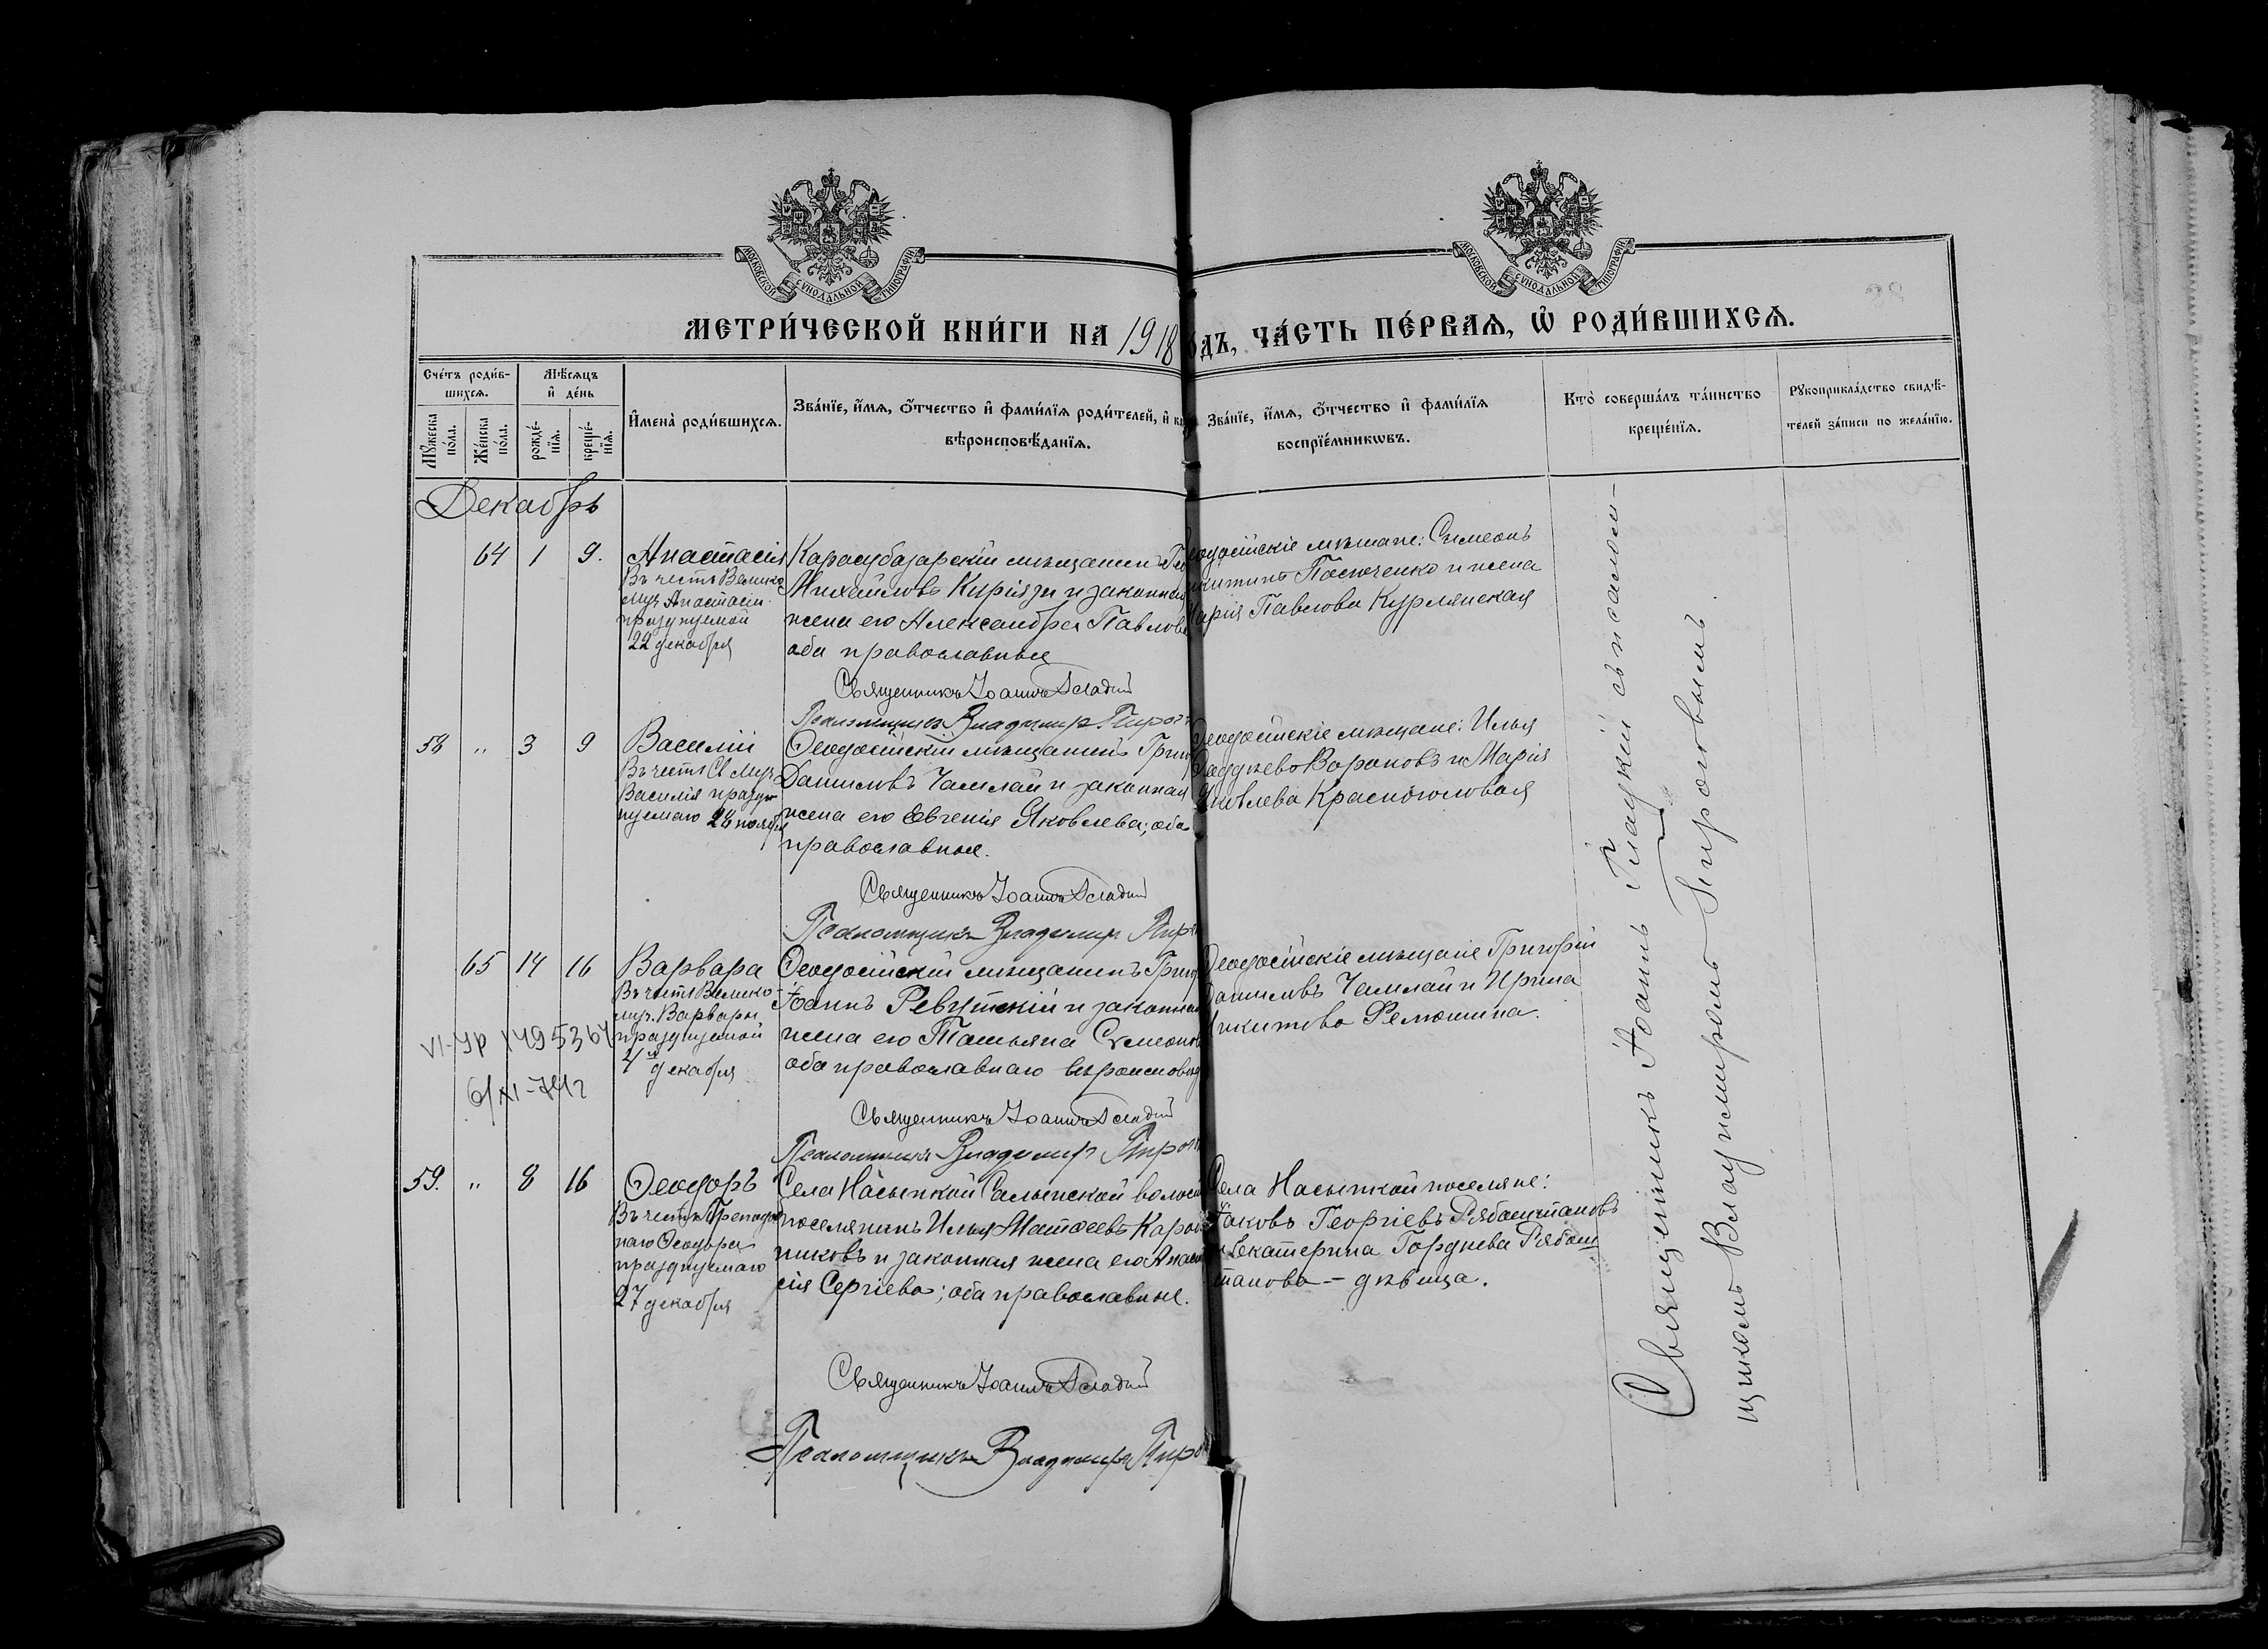 МОСКОВСКОЙ СѴНОДАЛЬНОЙ ТИПОГРАФІИ
МОСКОВСКОЙ СѴНОДАЛЬНОЙ ТИПОГРАФІИ
МЕТРИ́ЧЕСКОЙ КНИ́ГИ НА 1918 ОДЪ, ЧА́СТЬ ПЕ́РВАѦ, Ѡ҆ РОДИ́ВШИХСѦ.
Сче́тъ роди́в-
шихсѧ.
Мꙋ́жеска по́ла.
Же́нска по́ла.
Мѣ́сѧцъ
и҆ де́нь
рожде́-нїѧ.
креще́-нїѧ.
И҆мена̀ роди́вшихсѧ.
Зва́нїе, и҆́мѧ, ѻ҆́тчество и҆ фами́лїѧ роди́телей, и҆
вѣроисповѣ́данїѧ.
Зва́нїе, и҆́мѧ, ѻ҆́тчество и҆ фами́лїѧ
воспрїе́мникѡвъ.
Кто̀ соверша́лъ та́инство
креще́нїѧ.
Рꙋкоприкла́дство свидѣ́-
телей за́писи по жела́нїю.
Декабрь
64 1 9.
Анастасія
Въ честь Велико
муч. Анастасіи
празднуемой
22 декабря
Карасубазарскій мѣщанинъ
Михайловъ Киріязи и законная
жена его Александра Павлова
оба православные
Священникъ Іоаннъ Гладкій
Псаломщикъ Владимир Пиро
еодосійскіе мѣщане: Симеонъ
икитинъ и жена
арія Павлова Курлянская
58 " 3 9
Василій
Въ честь Св. Муч.
Василія празд
нуемаго 28 ноября
Ѳеодосійскій мѣщанинъ Григ
Даниловъ Чамлай и законная
жена его Евгенія Яковлева; оба
православные.
Священникъ Іоаннъ Гладкій
Псаломщикъ Владимир Пиро
Ѳеодосійскіе мѣщане: Илья
Вороновъ и Марія
Яковлева Красноголовая
65 14 16
Варвара
Въ честь Велико-
муч. Варвары
празднуемой
4го декабря
VI-УР 1495364
6/XI-74г
Ѳеодосійскій мѣщанинъ Григ
Іоаннъ Ревутскій и законная
жена его Татьяна Симеонов
оба православнаго вѣроисповѣд
Священникъ Іоаннъ Гладкій
Псаломщикъ Владимир Пиро
Ѳеодосійскіе мѣщане Григорій
Даниловъ Чамлай и Ирина
Никитова
59. " 8 16
Ѳеодоръ
Въ честь Преподоб
наго Ѳеодора
празднуемаго
27 декабря
Села Насыпкой Салынской волост
поселянинъ Илья Матѳеевъ Кароп
никовъ и законная жена его Анаста
сія Сергіева; оба православные.
Священникъ Іоаннъ Гладкій
Псаломщикъ Владимиръ Пиро
Села Насыпкой поселяне:
Іаковъ Георгіевъ Рябоштановъ
и Екатерина Гордѣева Рябош
танова – дѣвица.
Священникъ Іоаннъ Гладкій съ псалом-
щикомъ Владимиромъ Пироговымъ.